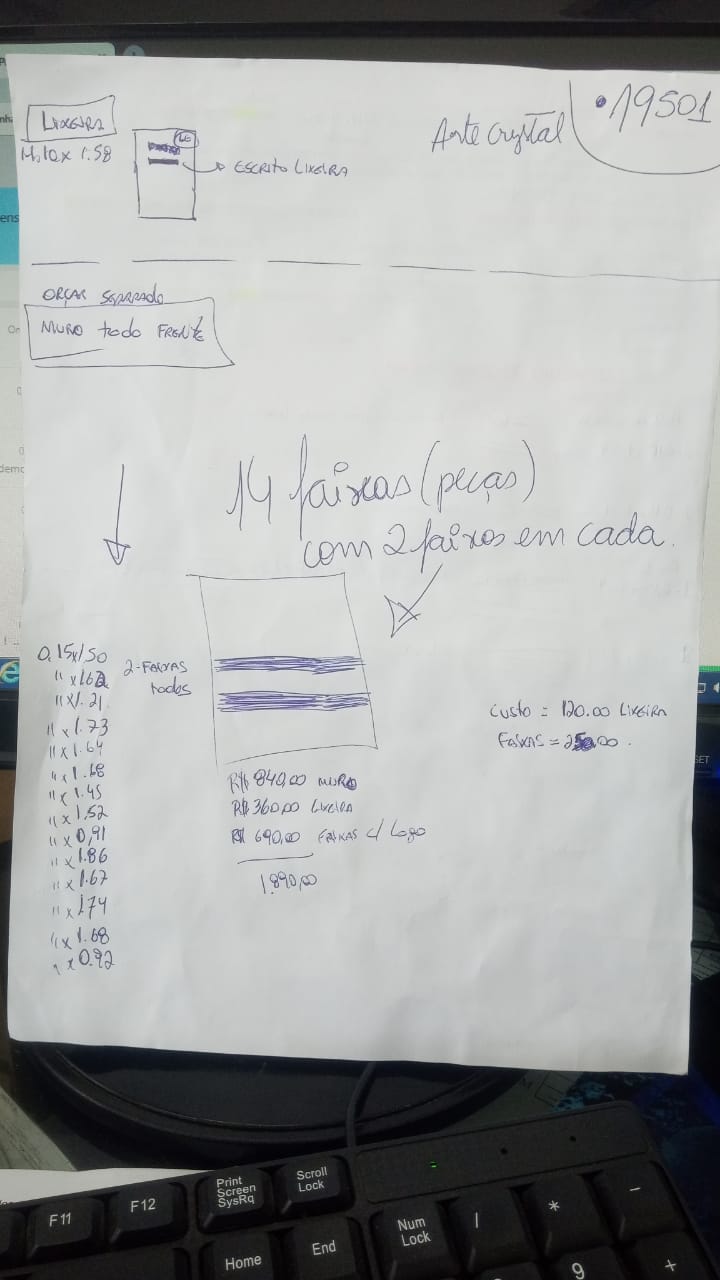 LIXEIRA
Arte Crystal
19501
1.58
ESCRITO LIXEIRA
ORÇAR SEPARADO
MURO todo FRENTE
14 faixas (peças)
com 2 faixas em cada.
0.15x1.50
" x1.62
" x1.21
" x 1.73
" x 1.64
" x 1.68
" x 1.45
" x 1.52
" x 0,91
" x 1.86
" x 1.67
" x 1.74
" x 1.68
" x 0.92
2-FAIXAS
todos
R$ 840,00 MURO
R$ 360,00 LIXEIRA
R$ 690,00 FAIXAS c/ Logo
1.890,00
CUSTO = 120.00 LIXEIRA
FAIXAS =
F11
F12
Print
Screen
SysRq
Scroll
Lock
Home
End
Num
Lock
/
*
-
9
+